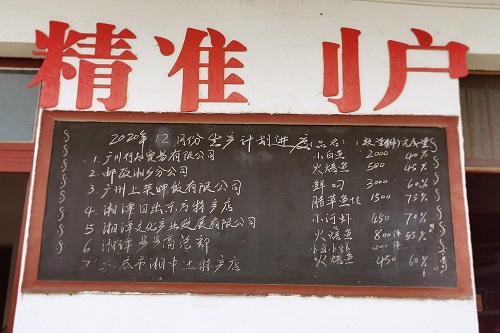 精准 刂户
2020年12月份生产计划进度(品名: 数量(件) 完成量
1. 广州何如贸易有限公司 小白鱼 2000 40%
火焙鱼 500 45%
2. 邮政湘乡分公司 鲜 3000 60%
3. 广州上菜邮做有限公司 腊 鱼 1500 75%
4. 湘潭日出东方特产店 小河虾 450 70%
5. 湘潭文化产业发展有限公司 火焙鱼 800件 55%
6. 湘潭 商范部 小
7. 底市湘中土特产店 火焙鱼 450 60%